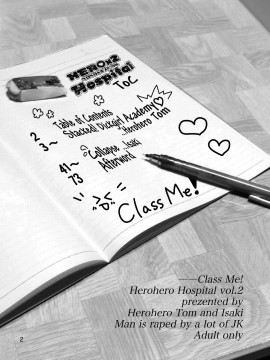 HEROx2
Hospital
ToC
2 Table of Contents
3~ Stacked! Dickgirl Academy
Herohero Tom
41~ Collapse Isaki
73 Afterword
Class Me!
──Class Me!
Herohero Hospital vol.2
prezented by
Herohero Tom and Isaki
Man is raped by a lot of JK
Adult only
2